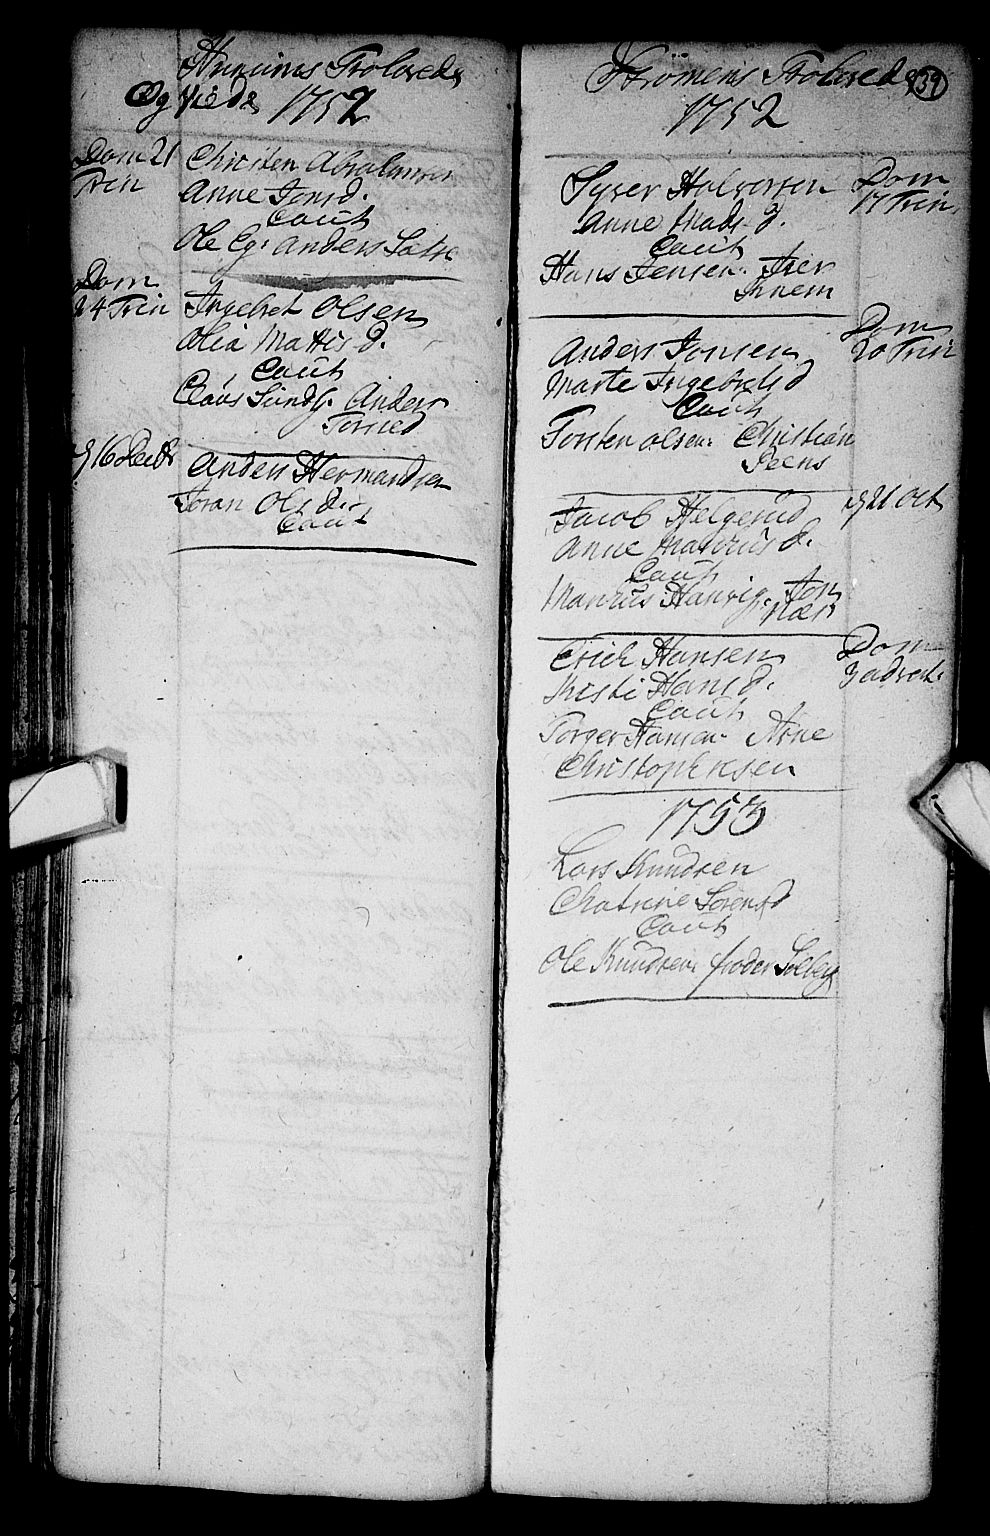 Hurums Trolovede
Og Viede 1752
Dom 21 Trin
Christen Abrahamsen
Anne Jonsd.
Caut
Ole Eg: Anders Sætre
Dom 24 Trin
Ingebret Olsen
Olia Mattisd.
Caut
Claus Sundf. Anders
Torsted
d 16 Decb
Anders Hermandsen
Joran Olsd.
Caut
Strömens Trolovede
139
1752
Dom 17 Trin
Syver Halvorsen
Anne Madsd.
Caut
Hans Jensen. Iver
Knem
Dom 20 Trin
Anders Jonsen
Marte Ingebretsd
Caut
Torsten Olsen. Christian
Peens
d 21 Oct
Jacob Helgerud
Anne Maurusd.
Caut
Maurus Hanvig. Jon
Næs
Dom 3 advent
Erich Hansen
Kirsti Hansd.
Caut
Torger Hansen. Arne
Christophersen
1753
Lars Knudsen
Chatrine Sörensd
Caut
Ole Knudsen. Peder Solberg